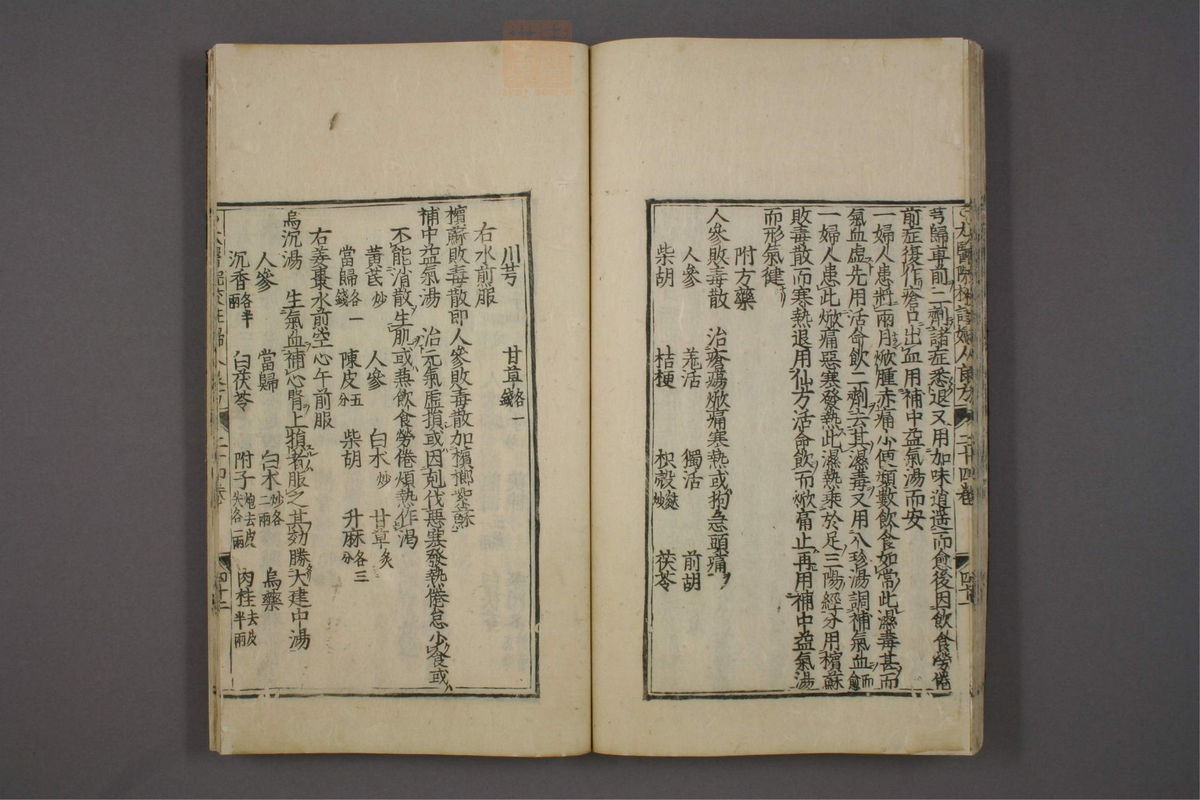 芎歸再前二劑諸症悉退又用加味逍遥而愈後因飲食勞倦
前症復作瘡口出血用補中益氣湯而安
一婦人患附兩月焮腫赤痛小便頻數飲食如常此濕毒甚而
氣血虚先用活命飲二劑去其濕毒又用八珍湯調補氣血而愈
一婦人患此焮痛惡寒發熱此濕熱乘於足三陽經分用檳蘇
敗毒散而寒熱退用仙方活命飲而焮痛止再用補中益氣湯
而形氣健
附方藥
人參敗毒散 治瘡瘍焮痛寒熱或拘急頭痛
人參 羗活 獨活 前胡
柴胡 桔梗 枳殻麩炒 茯苓
川芎 甘草各一錢
右水煎服
檳蘇敗毒散即人參敗毒散加檳榔紫蘇
補中益氣湯 治元氣虚損或因剋伐惡寒發熱倦怠少食或
不能消散生肌或兼飲食勞倦煩熱作渇
黄芪炒 人參 白朮炒 甘草炙
當歸各一錢 陳皮五分 柴胡 升麻各三分
右姜棗水煎空心午前服
烏沉湯 生氣血補心腎上損者服之其効勝大建中湯
人參 當歸 白朮炒各二兩 烏藥
沉香各半兩 白茯苓 附子炮去皮尖各一兩 肉桂去皮半兩
二十四卷
四十二